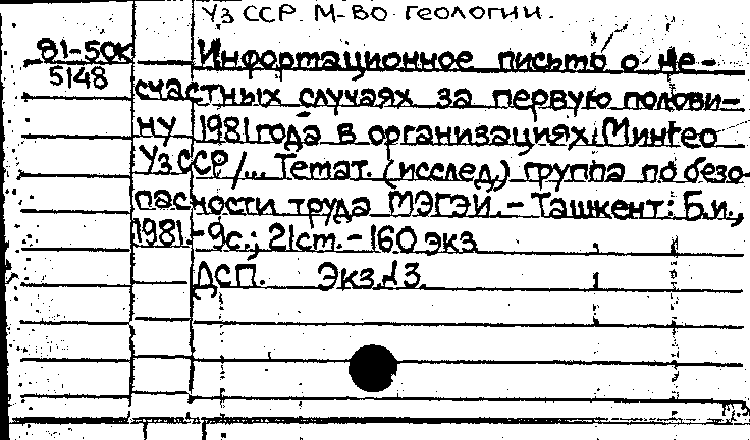 Уз ССР. М-во геологии.
81-50К
5148
Информационное письмо о не-
счастных случаях за первую полови-
ну 1981 года в организациях Мингео
УзССР/... Темат. (исслед.) группа по безо-
пасности труда МЭГЭИ. - Ташкент: Б.и.,
1981. - 9с.; 21см. - 160 экз
ДСП. Экз. 13.